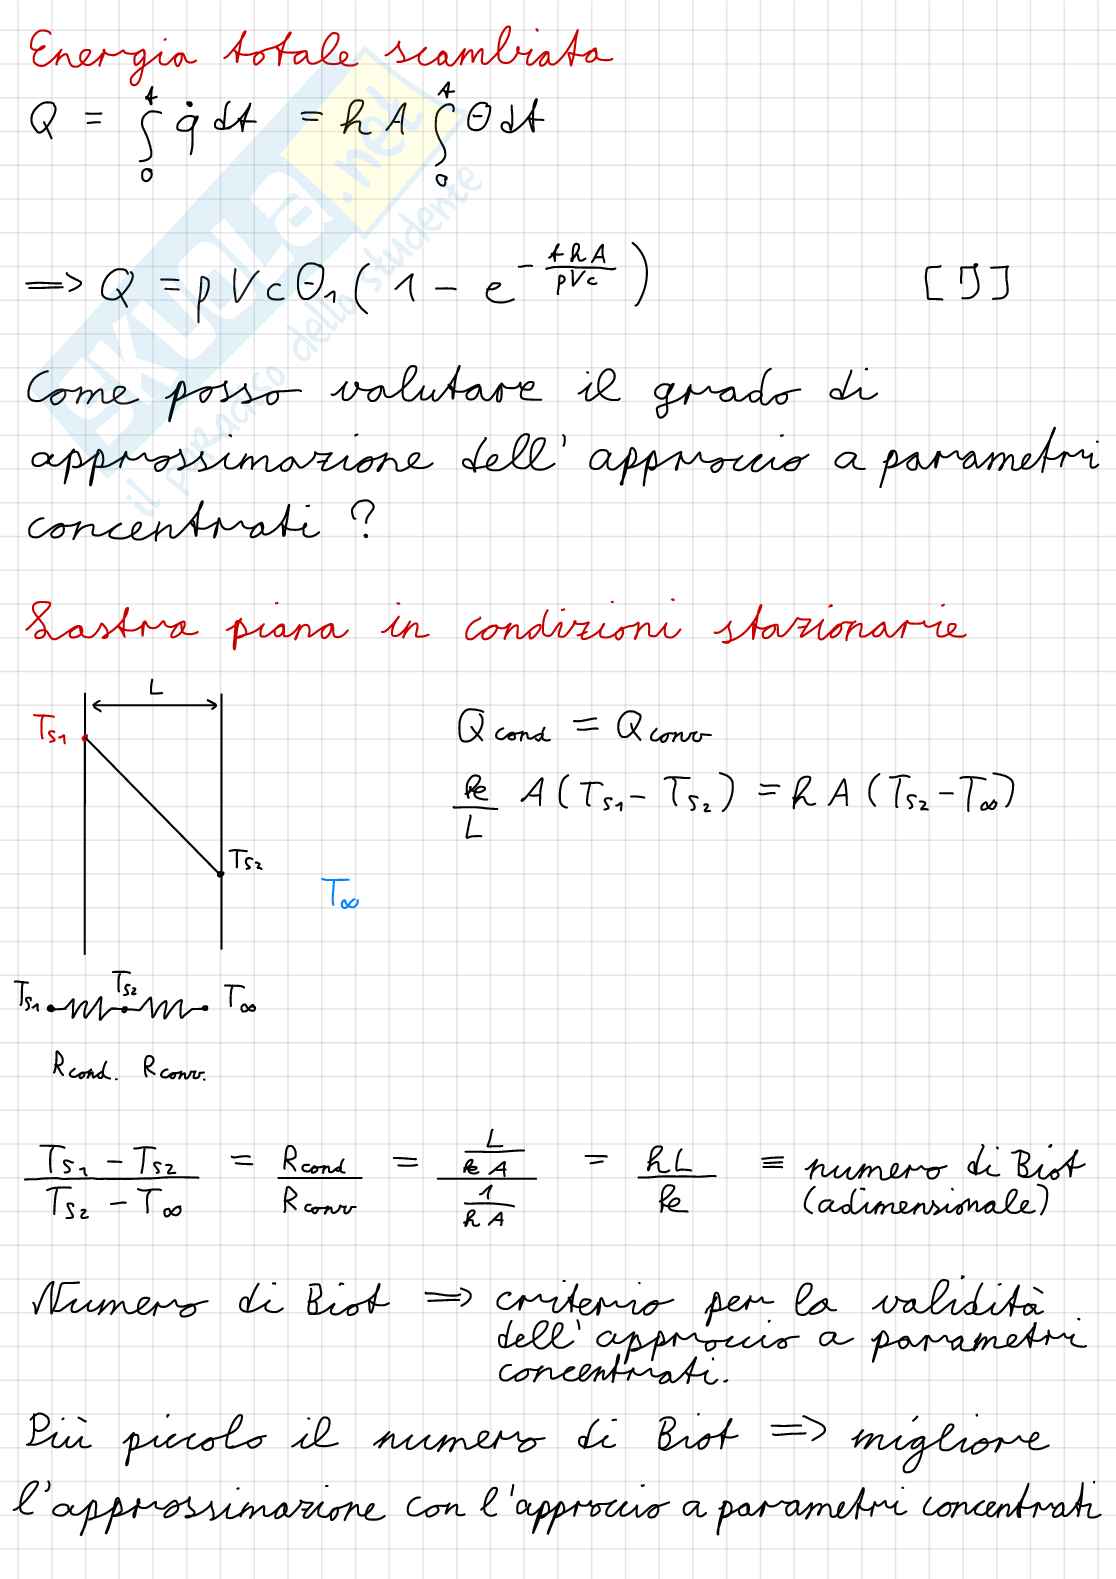 Energia totale scambiata
Q = ∫₀ᵗ q̇ dt = h A ∫₀ᵗ θ dt
=> Q = ρVcθ₁(1 - e^(-thA/ρVc)) [J]
Come posso valutare il grado di
approssimazione dell'approccio a parametri
concentrati ?
Lastra piana in condizioni stazionarie
L
Ts1
Qcond = Qconv
k/L A (Ts1 - Ts2) = h A (Ts2 - T∞)
Ts2
T∞
Ts1 Ts2 T∞
Rcond. Rconv.
(Ts1 - Ts2)/(Ts2 - T∞) = Rcond/Rconv = (L/(kA))/(1/(hA)) = hL/k ≡ numero di Biot
(adimensionale)
Numero di Biot => criterio per la validità
dell'approccio a parametri
concentrati.
Più piccolo il numero di Biot => migliore
l'approssimazione con l'approccio a parametri concentrati
SKUOLA.net
il paradiso dello studente